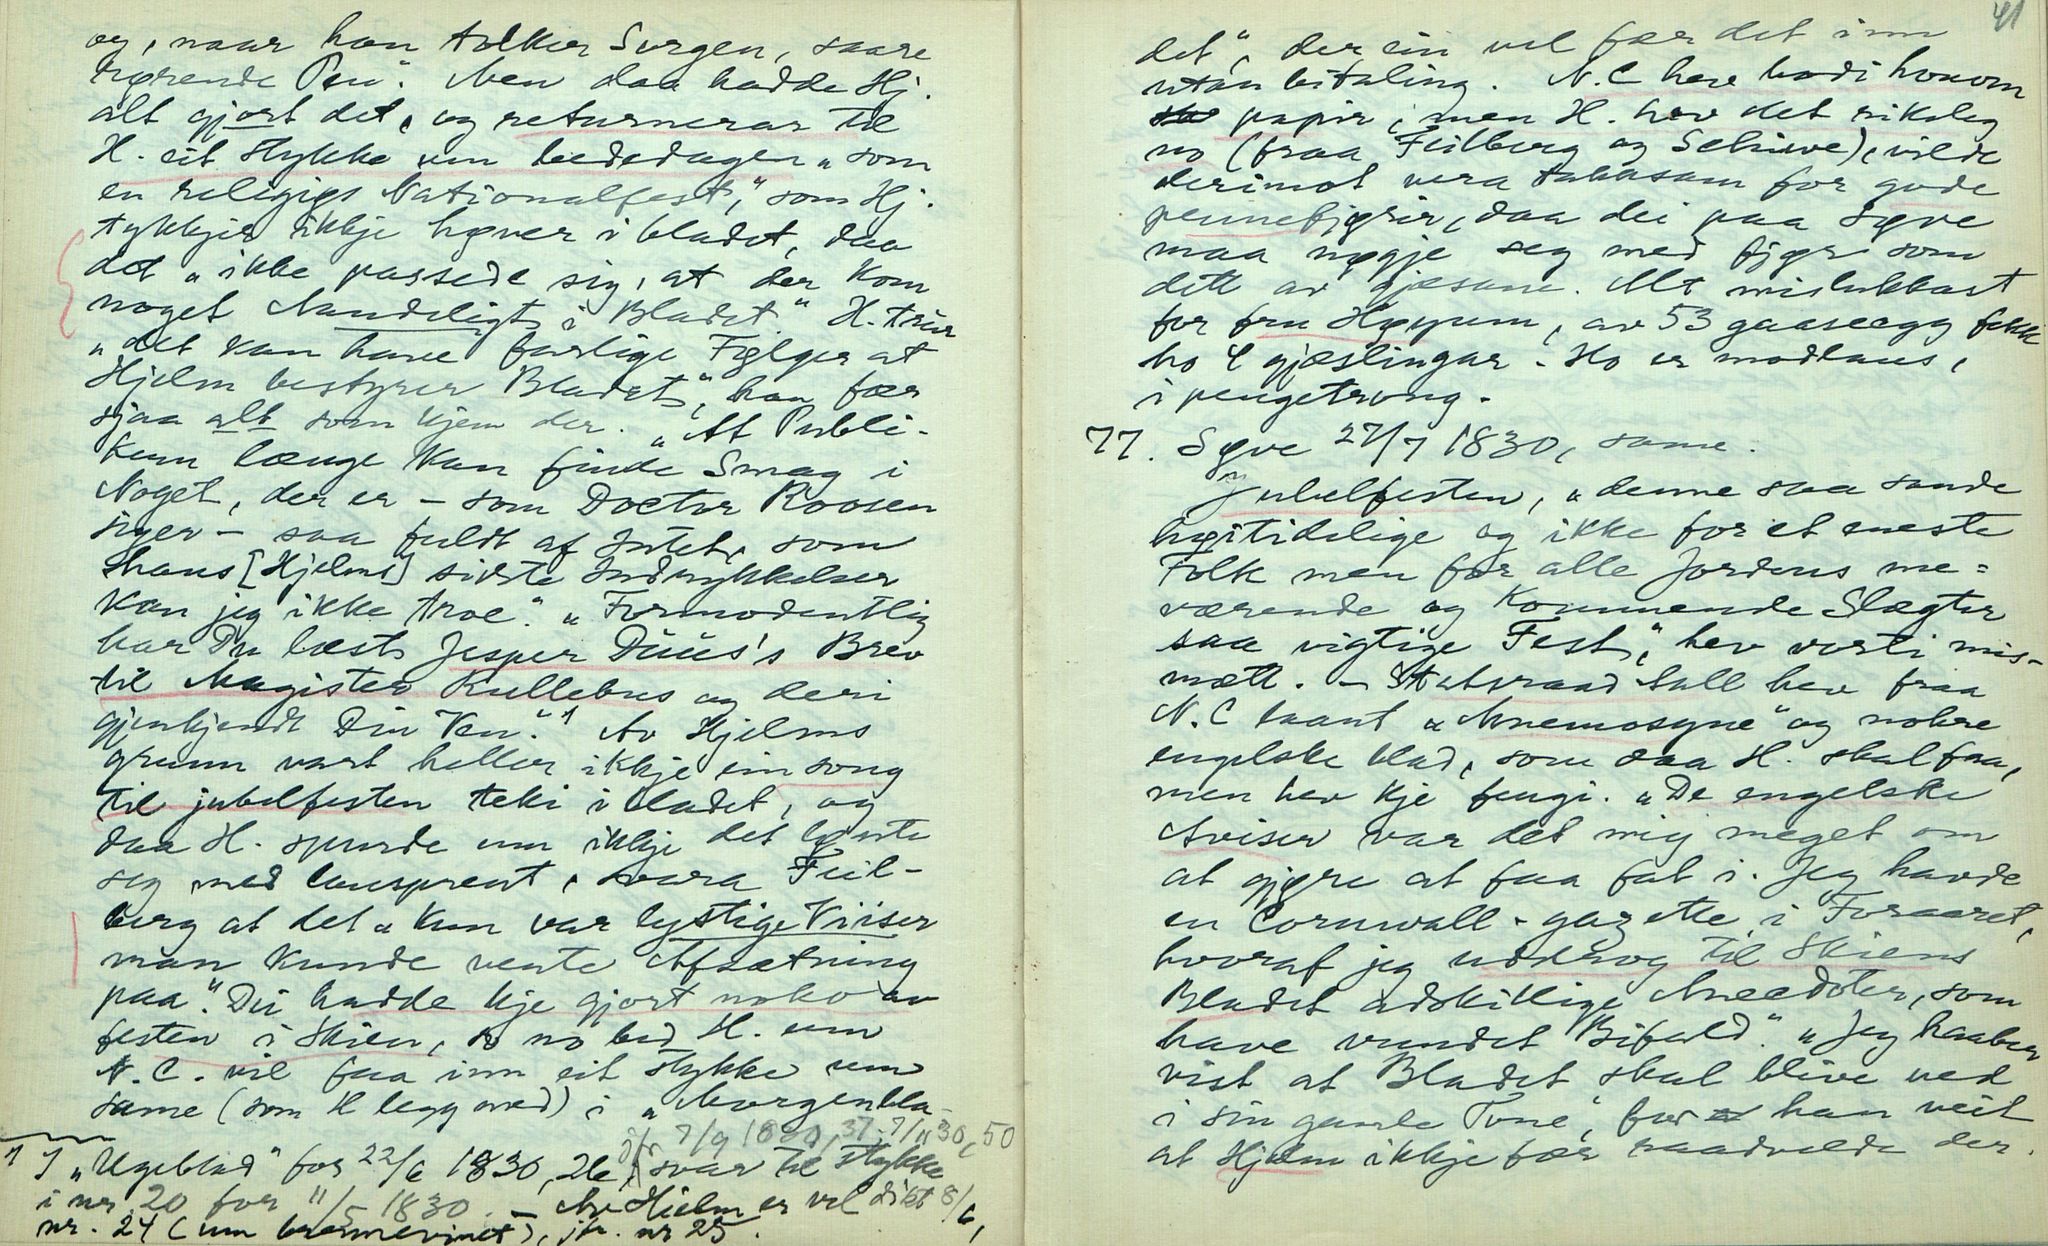 og, naar han tolker Sorgen, saare
rørende Pen". Men daa hadde Hj.
alt gjort det, og returnerar til
H. eit stykke um bededagen "som
en religiøs Nationalfest", som Hj.
tykkjer ikkje høver i bladet, daa
det "ikke passede sig, at der kom
noget Aandeligt i Bladet." H. trur
"det kan have farlige Følger at
Hjelm bestyrer Bladet", han fær
sjaa alt som kjem der. "At Publi-
kum længe kan finde Smag i
Noget, der er - som Doctor Roosen
siger - saa fuldt af Intet, som
hans [Hjelms] sidste Indrykkelser
kan jeg ikke troe." "Formodentlig
har Du læst Jesper Duus's Brev
til Magister Kullebus og deri
gjenkjendt Din Ven."¹ Av Hjelms
grunn vart heller ikkje ein song
til jubelfesten teki i bladet, og
daa H. spurde um ikkje det lønte
seg med lausprent, svara Feil-
berg at det "kun var lystige Viiser
man kunde vente Afsætning
paa". Dei hadde kje gjort noko av
festen i Skien, so no bed H. um
N. C. vil faa inn eit stykke um
same (som H legg ved) i "Morgenbla-
jfr 7/9 1830, 37, 7/11 30, 50
1 I "Ugeblad" for 22/6 1830, 26, svar til stykke
i nr. 20 for 11/5 1830. - Av Hielm er vel dikt 8/6,
nr. 24 (um brennevinet), jfr. nr 25.
41
det", der ein vel fær det inn
utan betaling. N. C hev bodi honom
papir, men H. hev det rikeleg
no (fraa Feilberg og Schiwe), vilde
derimot vera takksam for gode
pennefjører, daa dei paa Søve
maa nøgje seg med fjør som
dett av gjæsane. Alt mislukkast
for fru Høyum, av 53 gaaseegg fekk
ho 4 gjæslingar. Ho er modlaus,
i pengetrong.
77. Søve 27/7 1830, same.
Jubelfesten, "denne saa sande
høitidelige og ikke for et eneste
Folk men for alle Jordens nu-
værende og kommende Slægter
saa vigtige Fest", hev vorti mis-
nøtt. - Statsraad Fall hev fraa
N. C laant "Mnemosyne" og nokre
engelske blad, som daa H. skal faa,
men hev kje fengi. "De engelske
Aviser var det mig meget om
at gjøre at faa fat i. Jeg havde
en Cornwall-gazette i Foraaret,
hvoraf jeg uddrog til Skiens
Bladet adskillige Anecdoter, som
have vundet Bifald." "Jeg haaber
vist at Bladet skal blive ved
i sin gamle Tone", for han veit
at Hjelm ikkje fær raadvelde der.